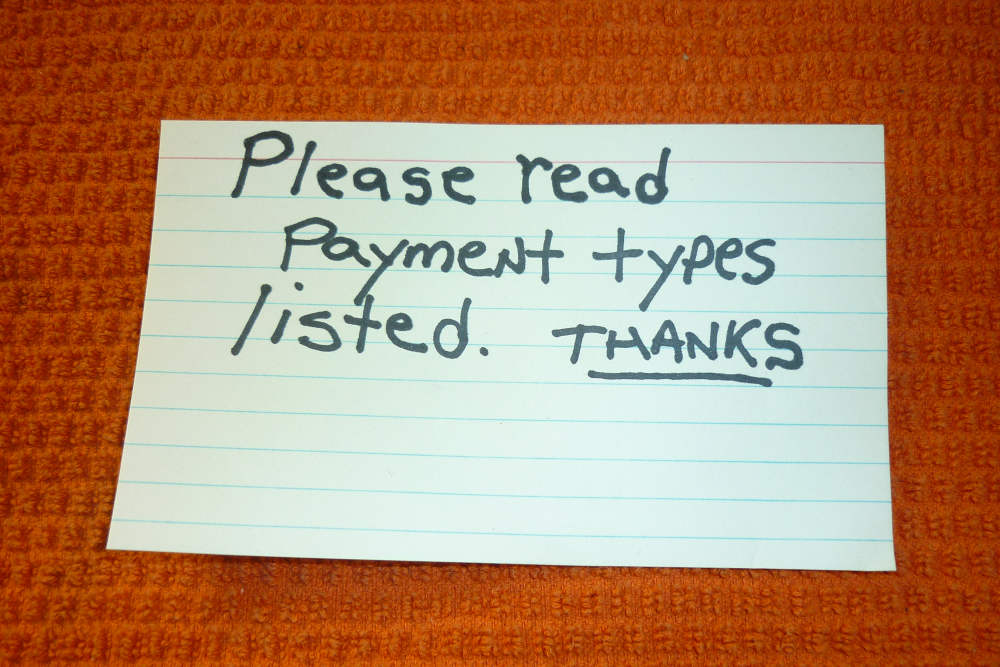 Please read
Payment types
listed. THANKS